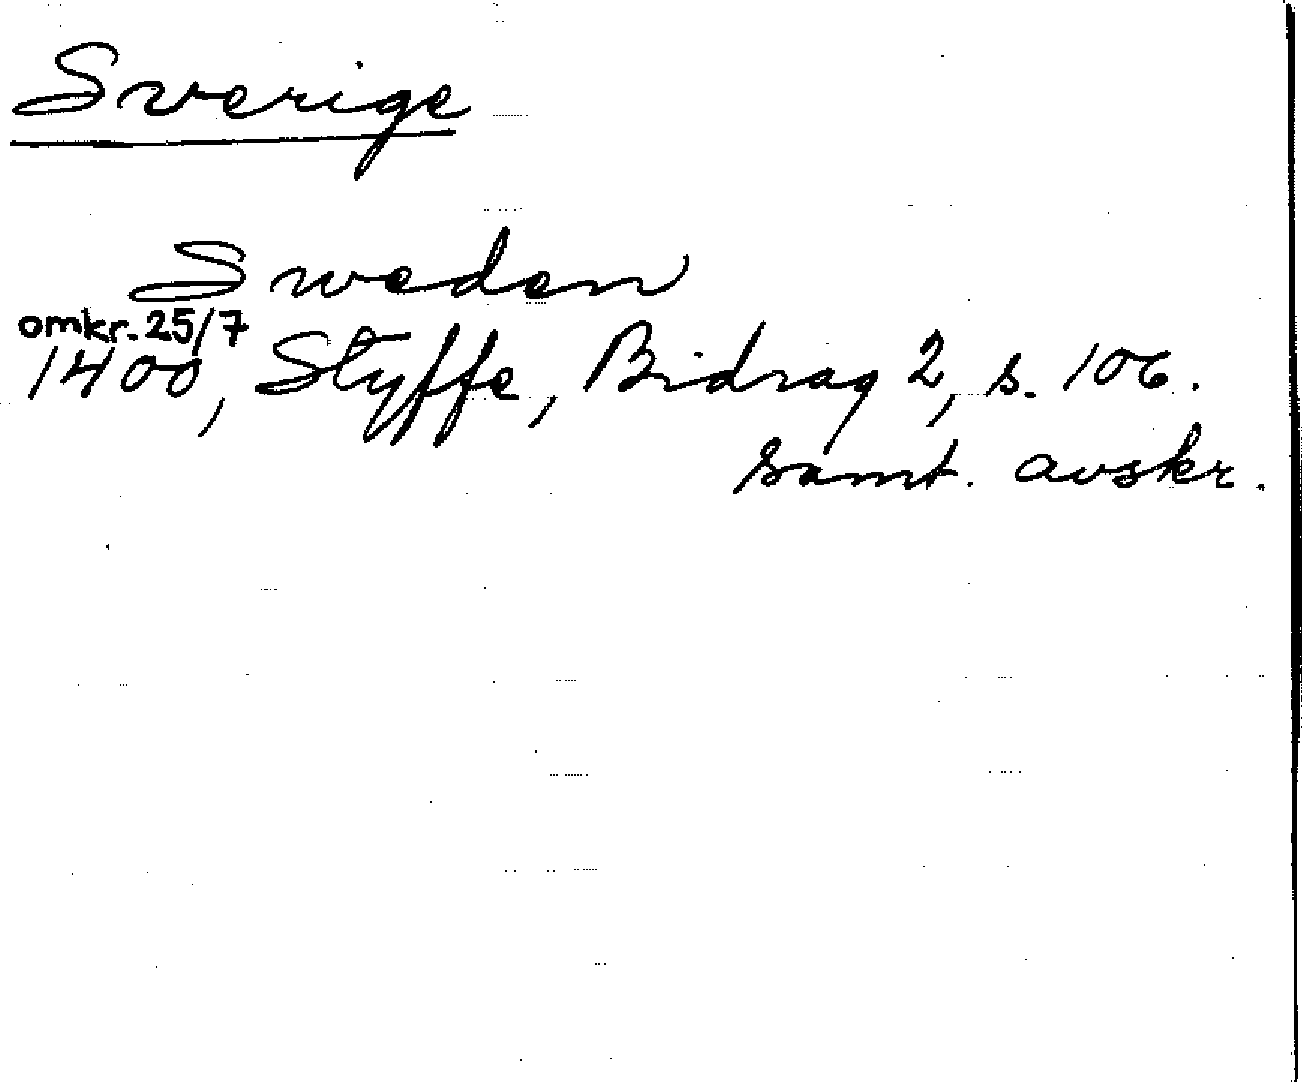 Sverige
Sweden
omkr. 25/7
1400, Styffe, Bidrag 2, s. 106.
samt. avskr.